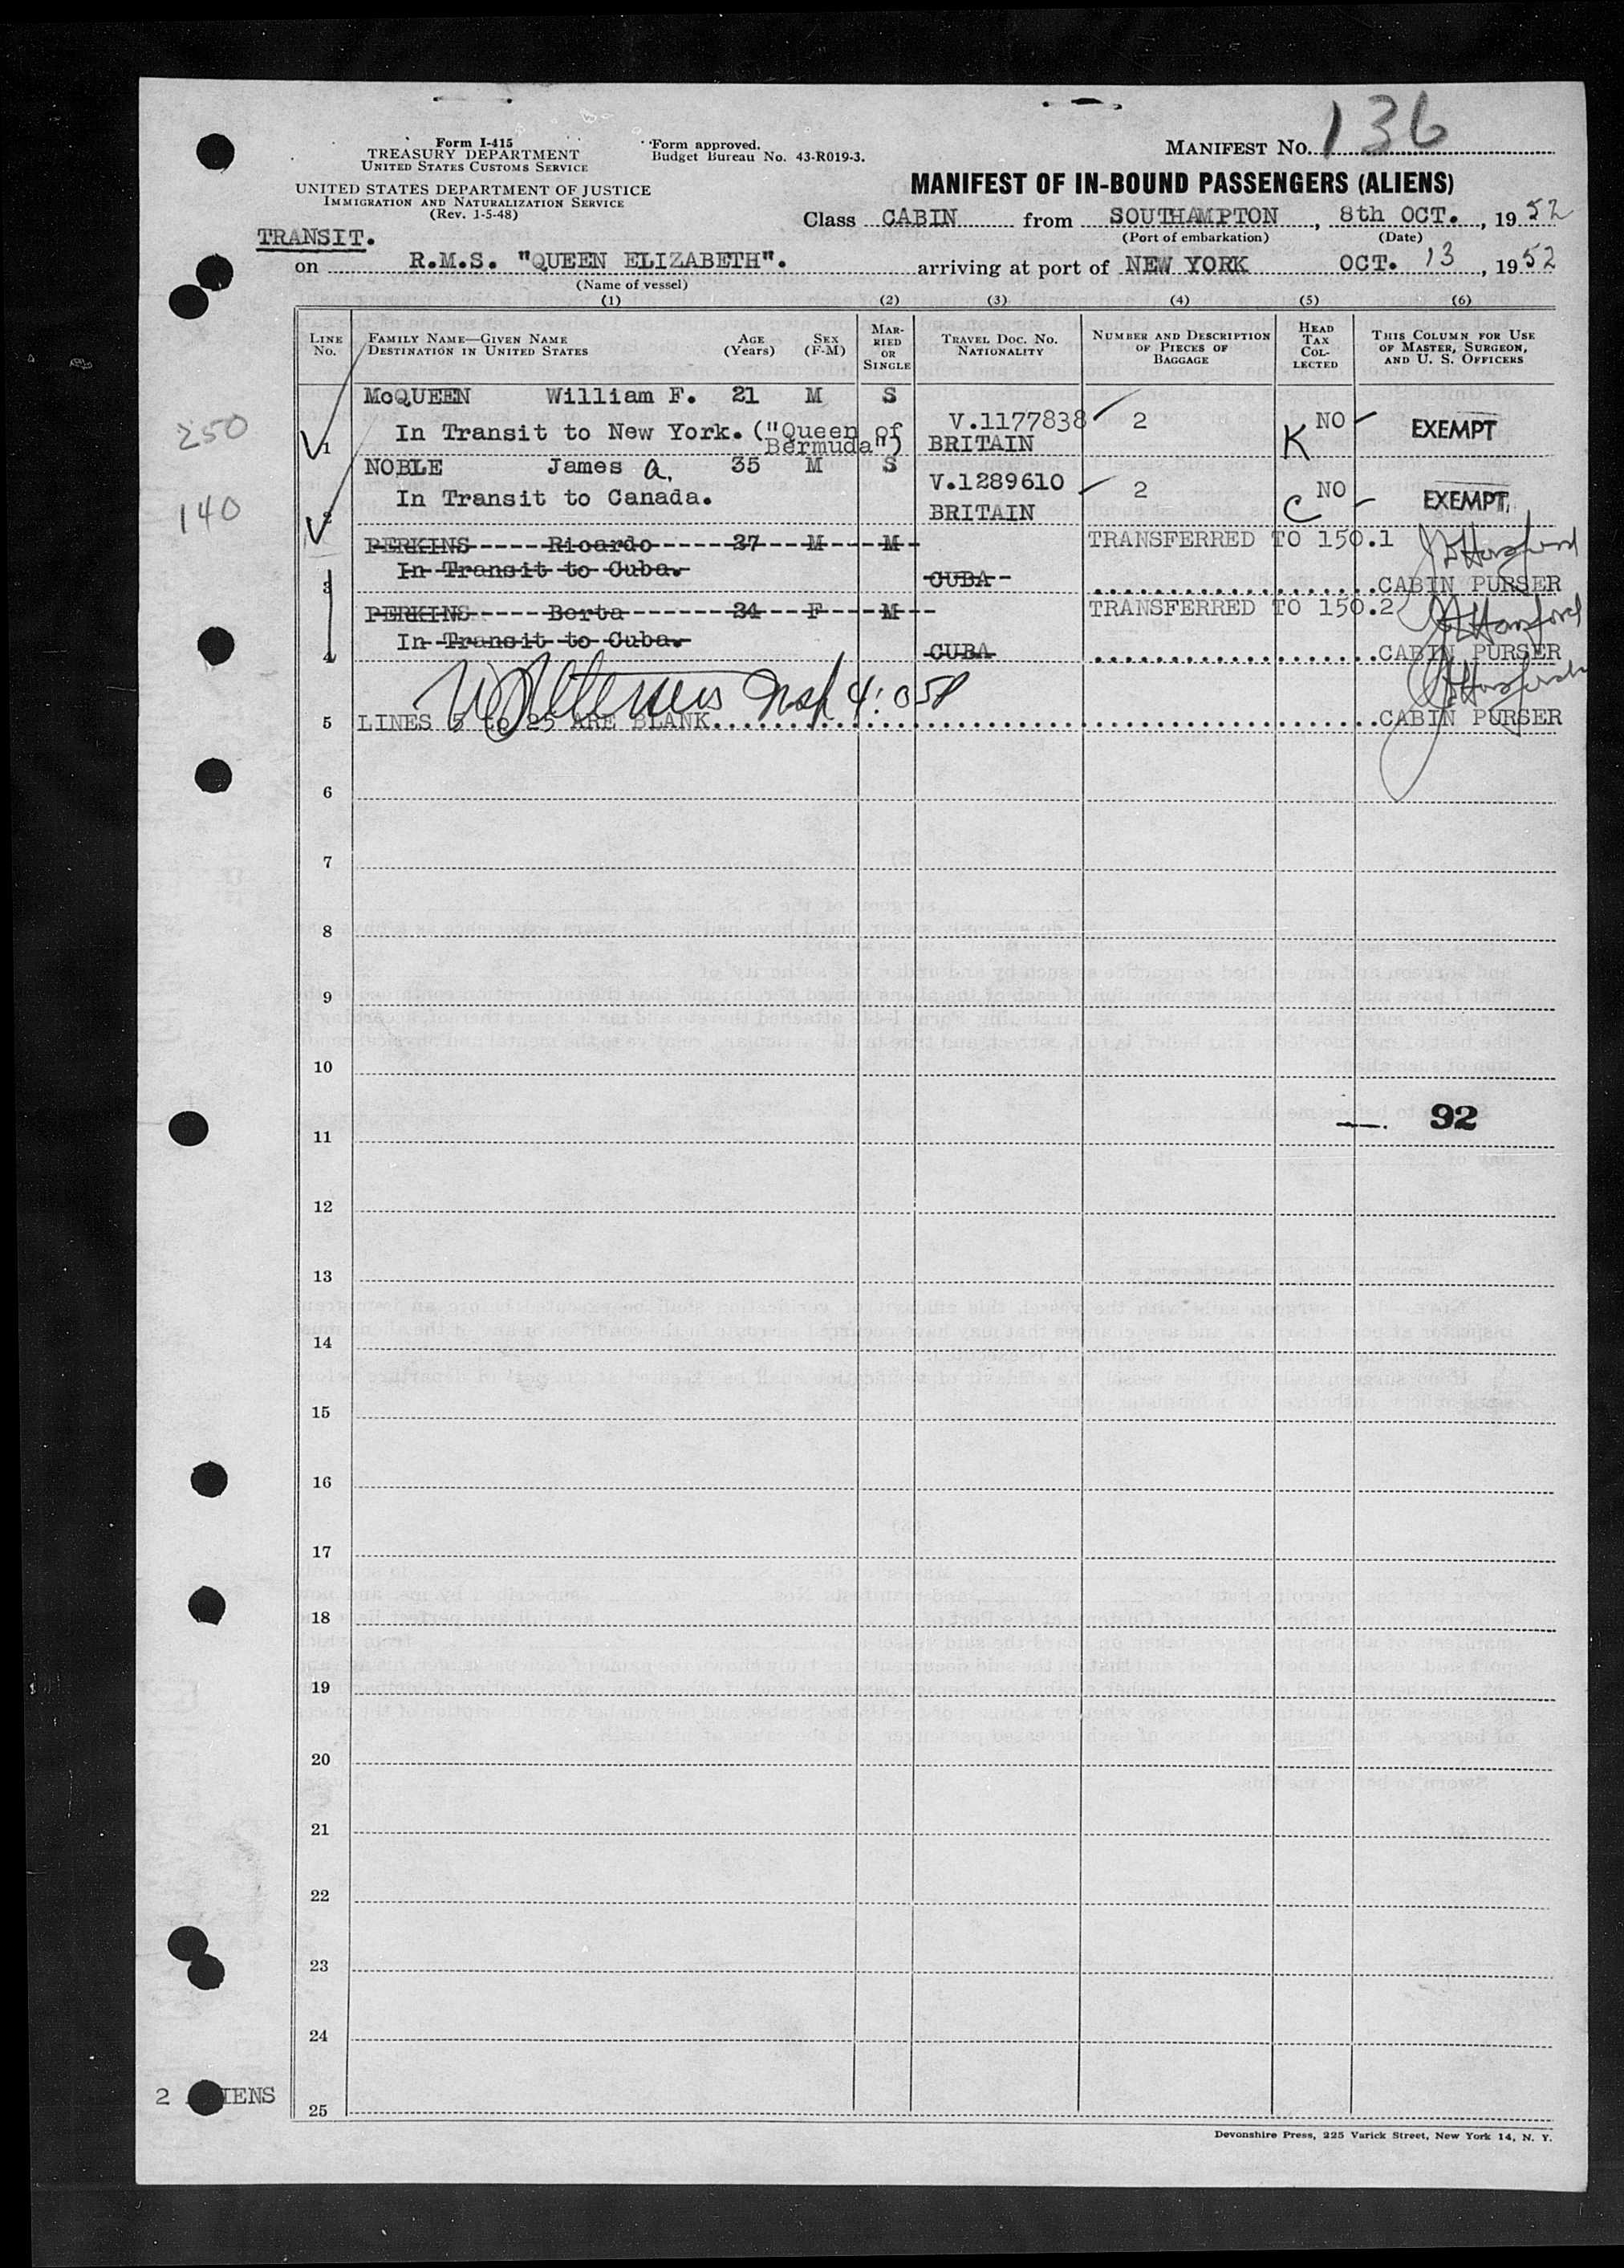 MANIFEST NO. 136
Form I-415
TREASURY DEPARTMENT
UNITED STATES CUSTOMS SERVICE
Form approved.
Budget Bureau No. 43-R019-3.
UNITED STATES DEPARTMENT OF JUSTICE
IMMIGRATION AND NATURALIZATION SERVICE
(Rev. 1-5-48)
MANIFEST OF IN-BOUND PASSENGERS (ALIENS)
Class CABIN from SOUTHAMPTON, 8th OCT., 1952
(Port of embarkation) (Date)
TRANSIT.
on R.M.S. "QUEEN ELIZABETH". arriving at port of NEW YORK OCT. 13, 1952
(Name of vessel)
(1) (2) (3) (4) (5) (6)
LINE No. FAMILY NAME—GIVEN NAME DESTINATION IN UNITED STATES AGE (Years) SEX (F-M) MARRIED OR SINGLE TRAVEL DOC. NO. NATIONALITY NUMBER AND DESCRIPTION OF PIECES OF BAGGAGE HEAD TAX COLLECTED THIS COLUMN FOR USE OF MASTER, SURGEON, AND U. S. OFFICERS
McQUEEN William F. 21 M S V.1177838 2 NO EXEMPT
250 1 In Transit to New York. ("Queen of Bermuda") BRITAIN K
NOBLE James A. 35 M S V.1289610 2 NO EXEMPT
140 2 In Transit to Canada. BRITAIN C
PERKINS Ricardo 37 M M TRANSFERRED TO 150.1
3 In Transit to Cuba. CUBA CABIN PURSER
PERKINS Berta 34 F M TRANSFERRED TO 150.2
4 In Transit to Cuba. CUBA CABIN PURSER
4:05P
5 LINES 5 to 25 ARE BLANK. CABIN PURSER
6
7
8
9
10
92
11
12
13
14
15
16
17
18
19
20
21
22
23
24
2 ALIENS
25
Devonshire Press, 225 Varick Street, New York 14, N. Y.